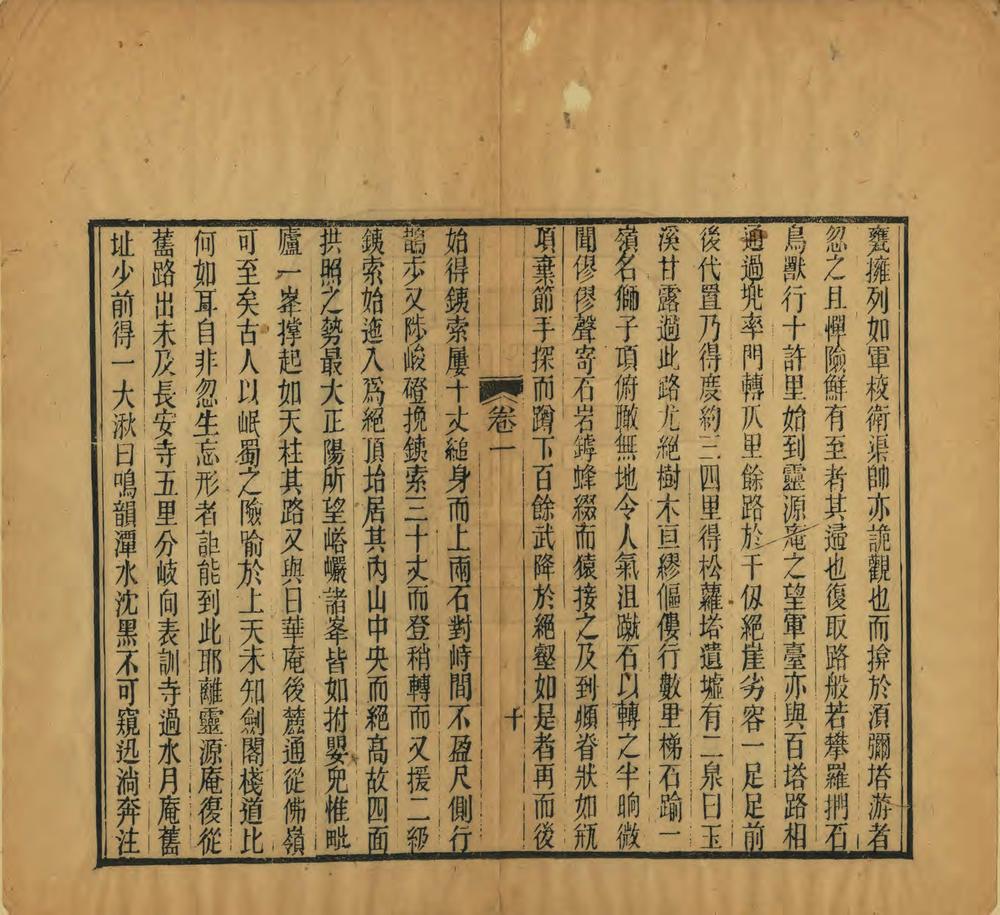 甕擁列如軍校衛渠帥亦詭觀也而揜於湏彌塔游者
忽之且憚險鮮有至者其還也復取路般若攀羅捫石
鳥獸行十許里始到靈源菴之望軍臺亦與百塔路相
通過兠率門轉仄里餘路於千仭絕崖劣容一足足前
後代置乃得度約三四里得松蘿塔遺墟有二泉曰玉
溪甘露過此路尤絕樹木亘繆傴僂行數里梯石踰一
嶺名獅子項俯瞰無地令人氣沮蹴石以轉之半晌微
聞僇僇聲寄石岩罅蜂綴而猿接之及到頫脊狀如瓶
項棄節手探而蹲下百餘武降於絕壑如是者再而後
卷一
十
始得銕索屢十丈縋身而上兩石對峙間不盈尺側行
鵲步又陟峻磴挽銕索三十丈而登稍轉而又援二級
銕索始迤入爲絕頂坮居其內山中央而絕髙故四面
拱照之勢最大正陽所望㟷巘諸峯皆如拊嬰兒惟毗
廬一峯撑起如天柱其路又與日華庵後麓通從佛嶺
可至矣古人以岷蜀之險踰於上天未知劍閣棧道比
何如耳自非忽生忘形者詎能到此耶離靈源庵復從
舊路出未及長安寺五里分岐向表訓寺過水月庵舊
址少前得一大湫曰鳴韻潭水沈黑不可窺迅淌奔注